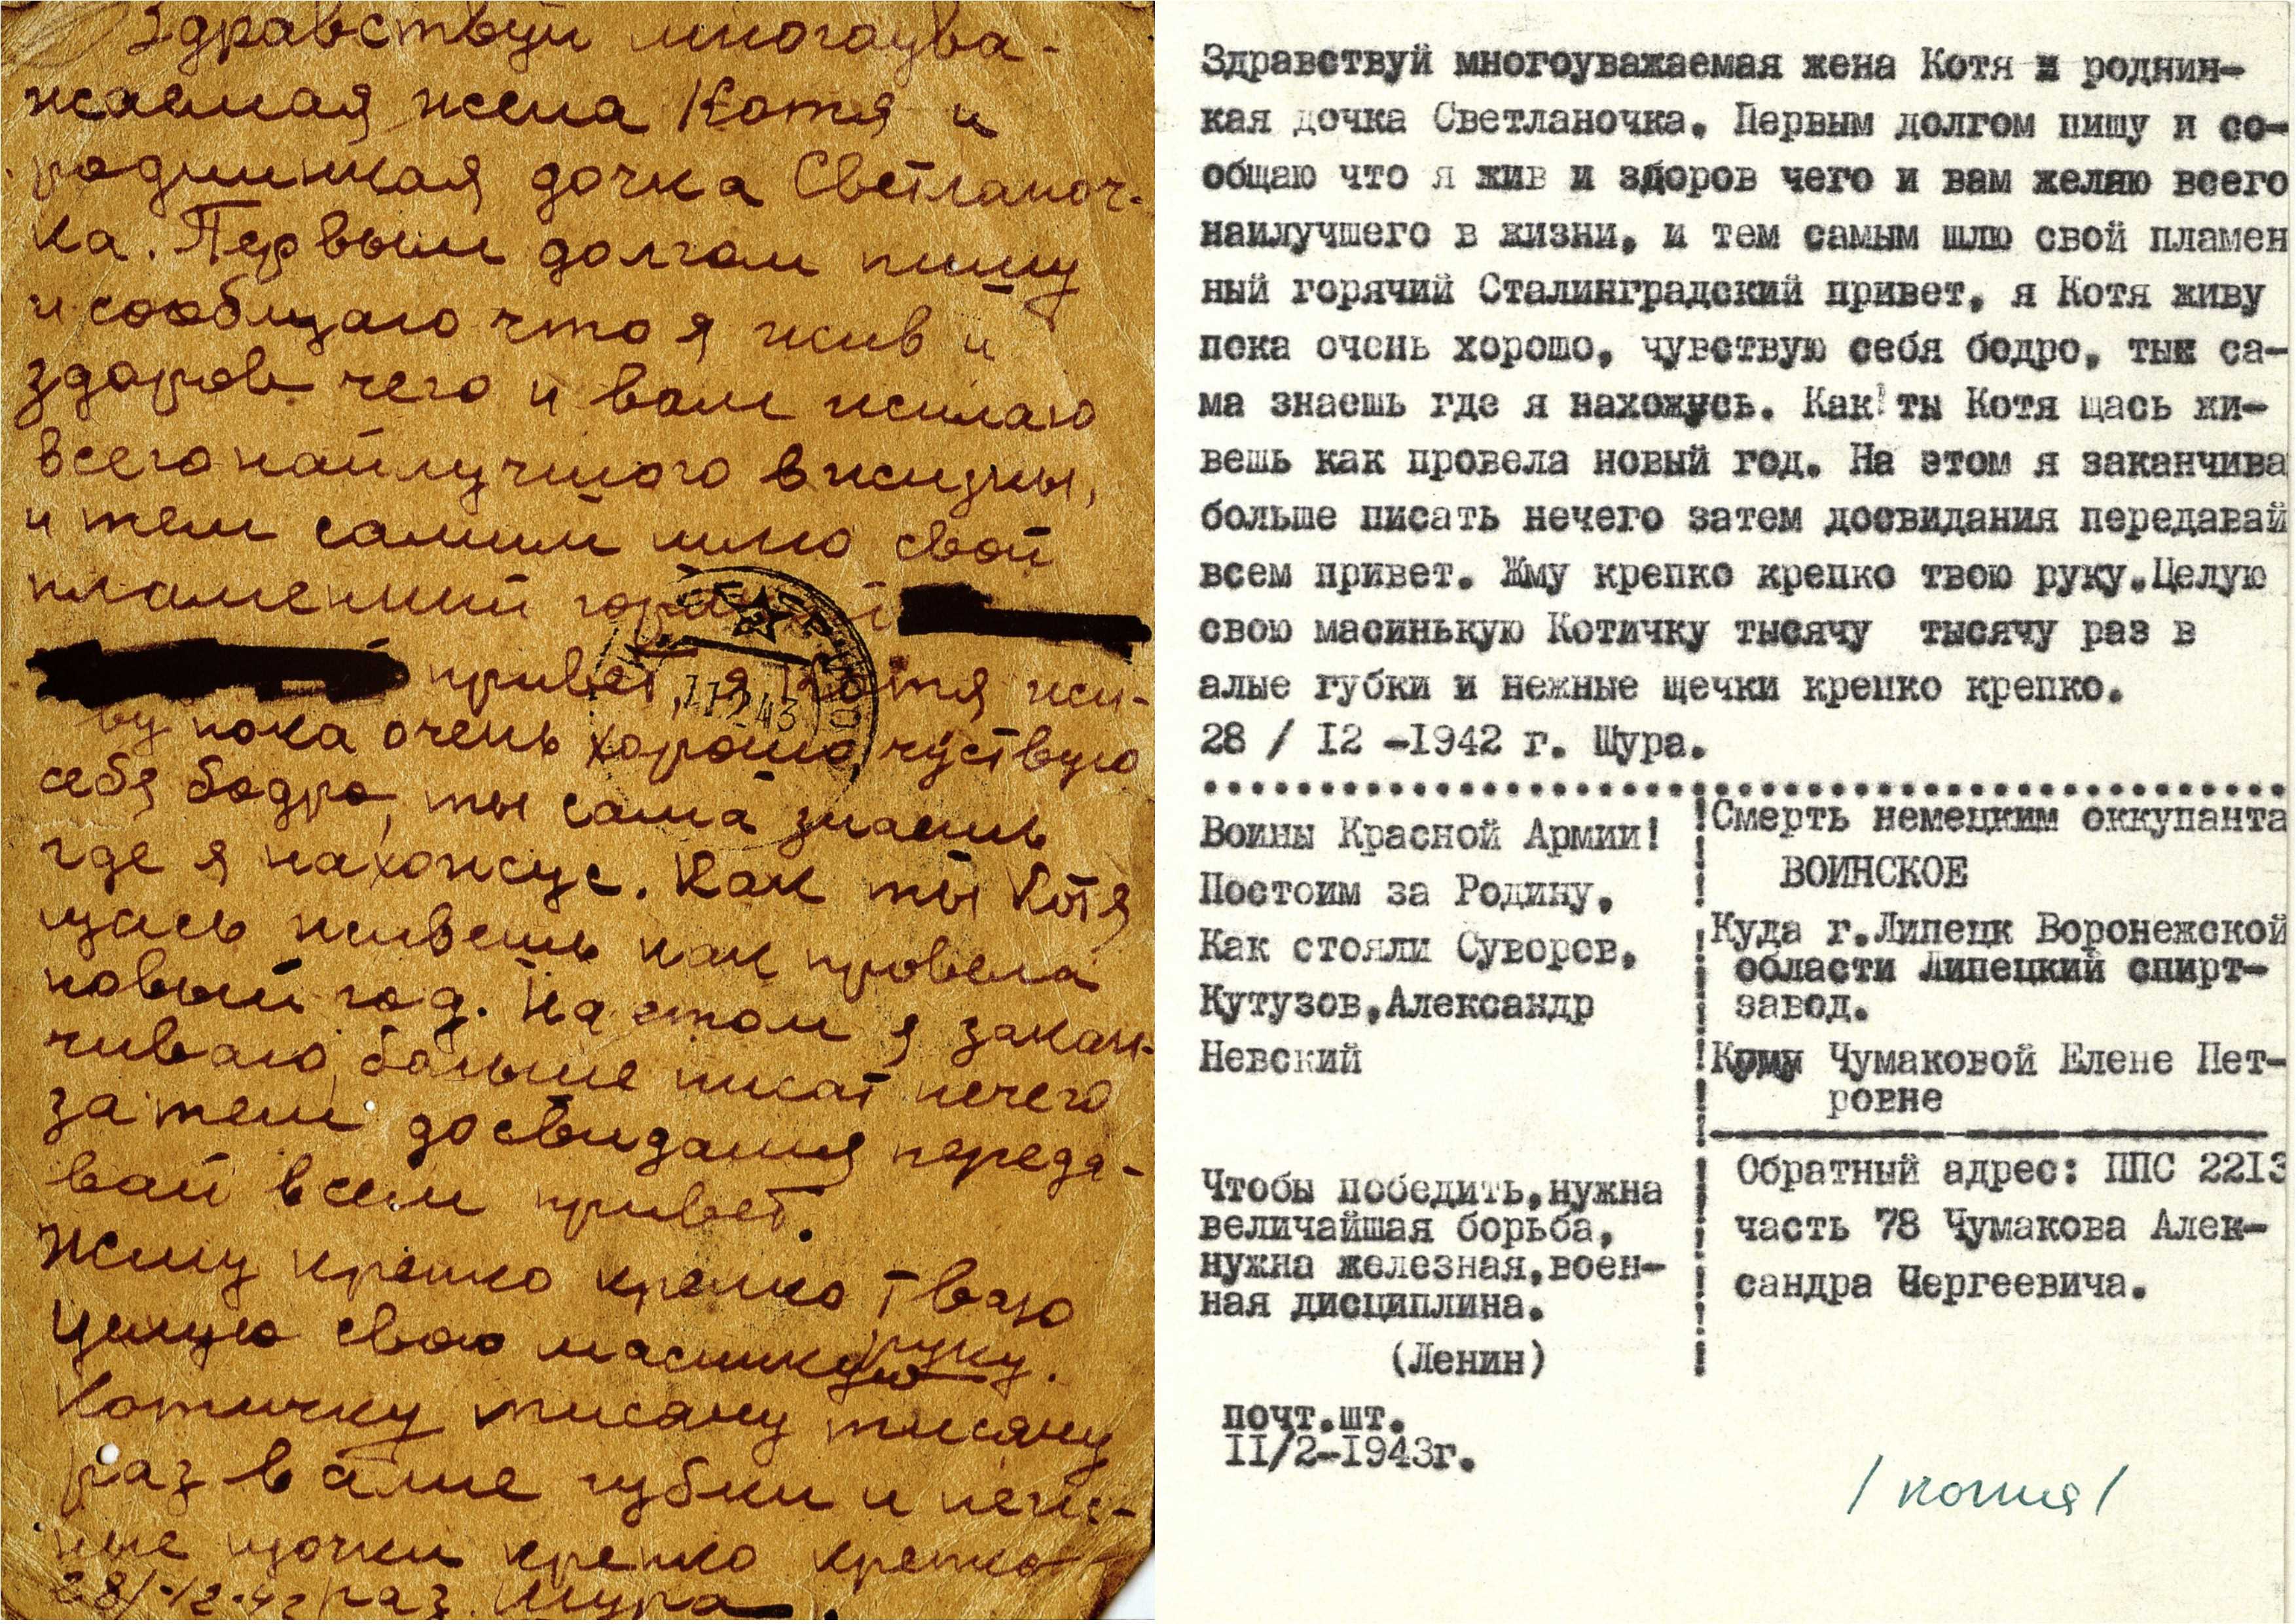 Здравствуй многоува-
жаемая жена Котя и
роднинкая дочка Светланоч-
ка. Первым долгом пишу
и сообщаю что я жив и
здоров чего и вам жилаю
всего найлучшого в жизны,
и тем самим шлю свой
пламенний горячий
привет, я Котя жи-
ву пока очень хорошо, чуствую
себя бодро, ты сама знаешь
где я нахожус. Как ты Котя
щась живешь как провела
новый год. На етом я закан-
чиваю, больше писат нечего
затем досвидания переда-
вай всем привет.
Жму крепко крепко твою
руку.
Цилую свою масинкую
Котичку тисячу тисячу
раз в алые губки и неж-
ные щочки крепко крепко
28/12-42 раз. Шура.
11 2 43
Здравствуй многоуважаемая жена Котя и роднин-
кая дочка Светланочка. Первым долгом пишу и со-
общаю что я жив и здоров чего и вам желаю всего
наилучшего в жизни, и тем самым шлю свой пламен
ный горячий Сталинградский привет, я Котя живу
пока очень хорошо, чувствую себя бодро, ты са-
ма знаешь где я нахожусь. Как ты Котя щась жи-
вешь как провела новый год. На этом я заканчива
больше писать нечего затем досвидания передавай
всем привет. Жму крепко крепко твою руку.Целую
свою масинькую Котичку тысячу тысячу раз в
алые губки и нежные щечки крепко крепко.
28 / I2 -I942 г. Шура.
Воины Красной Армии!
Постоим за Родину,
Как стояли Суворов,
Кутузов,Александр
Невский
Чтобы победить,нужна
величайшая борьба,
нужна железная,воен-
ная дисциплина.
(Ленин)
почт.шт.
II/2-I943г.
Смерть немецким оккупанта
ВОИНСКОЕ
Куда г.Липецк Воронежской
области Липецкий спирт-
завод.
Кому Чумаковой Елене Пет-
ровне
Обратный адрес: ППС 2213
часть 78 Чумакова Алек-
сандра Сергеевича.
/копия/